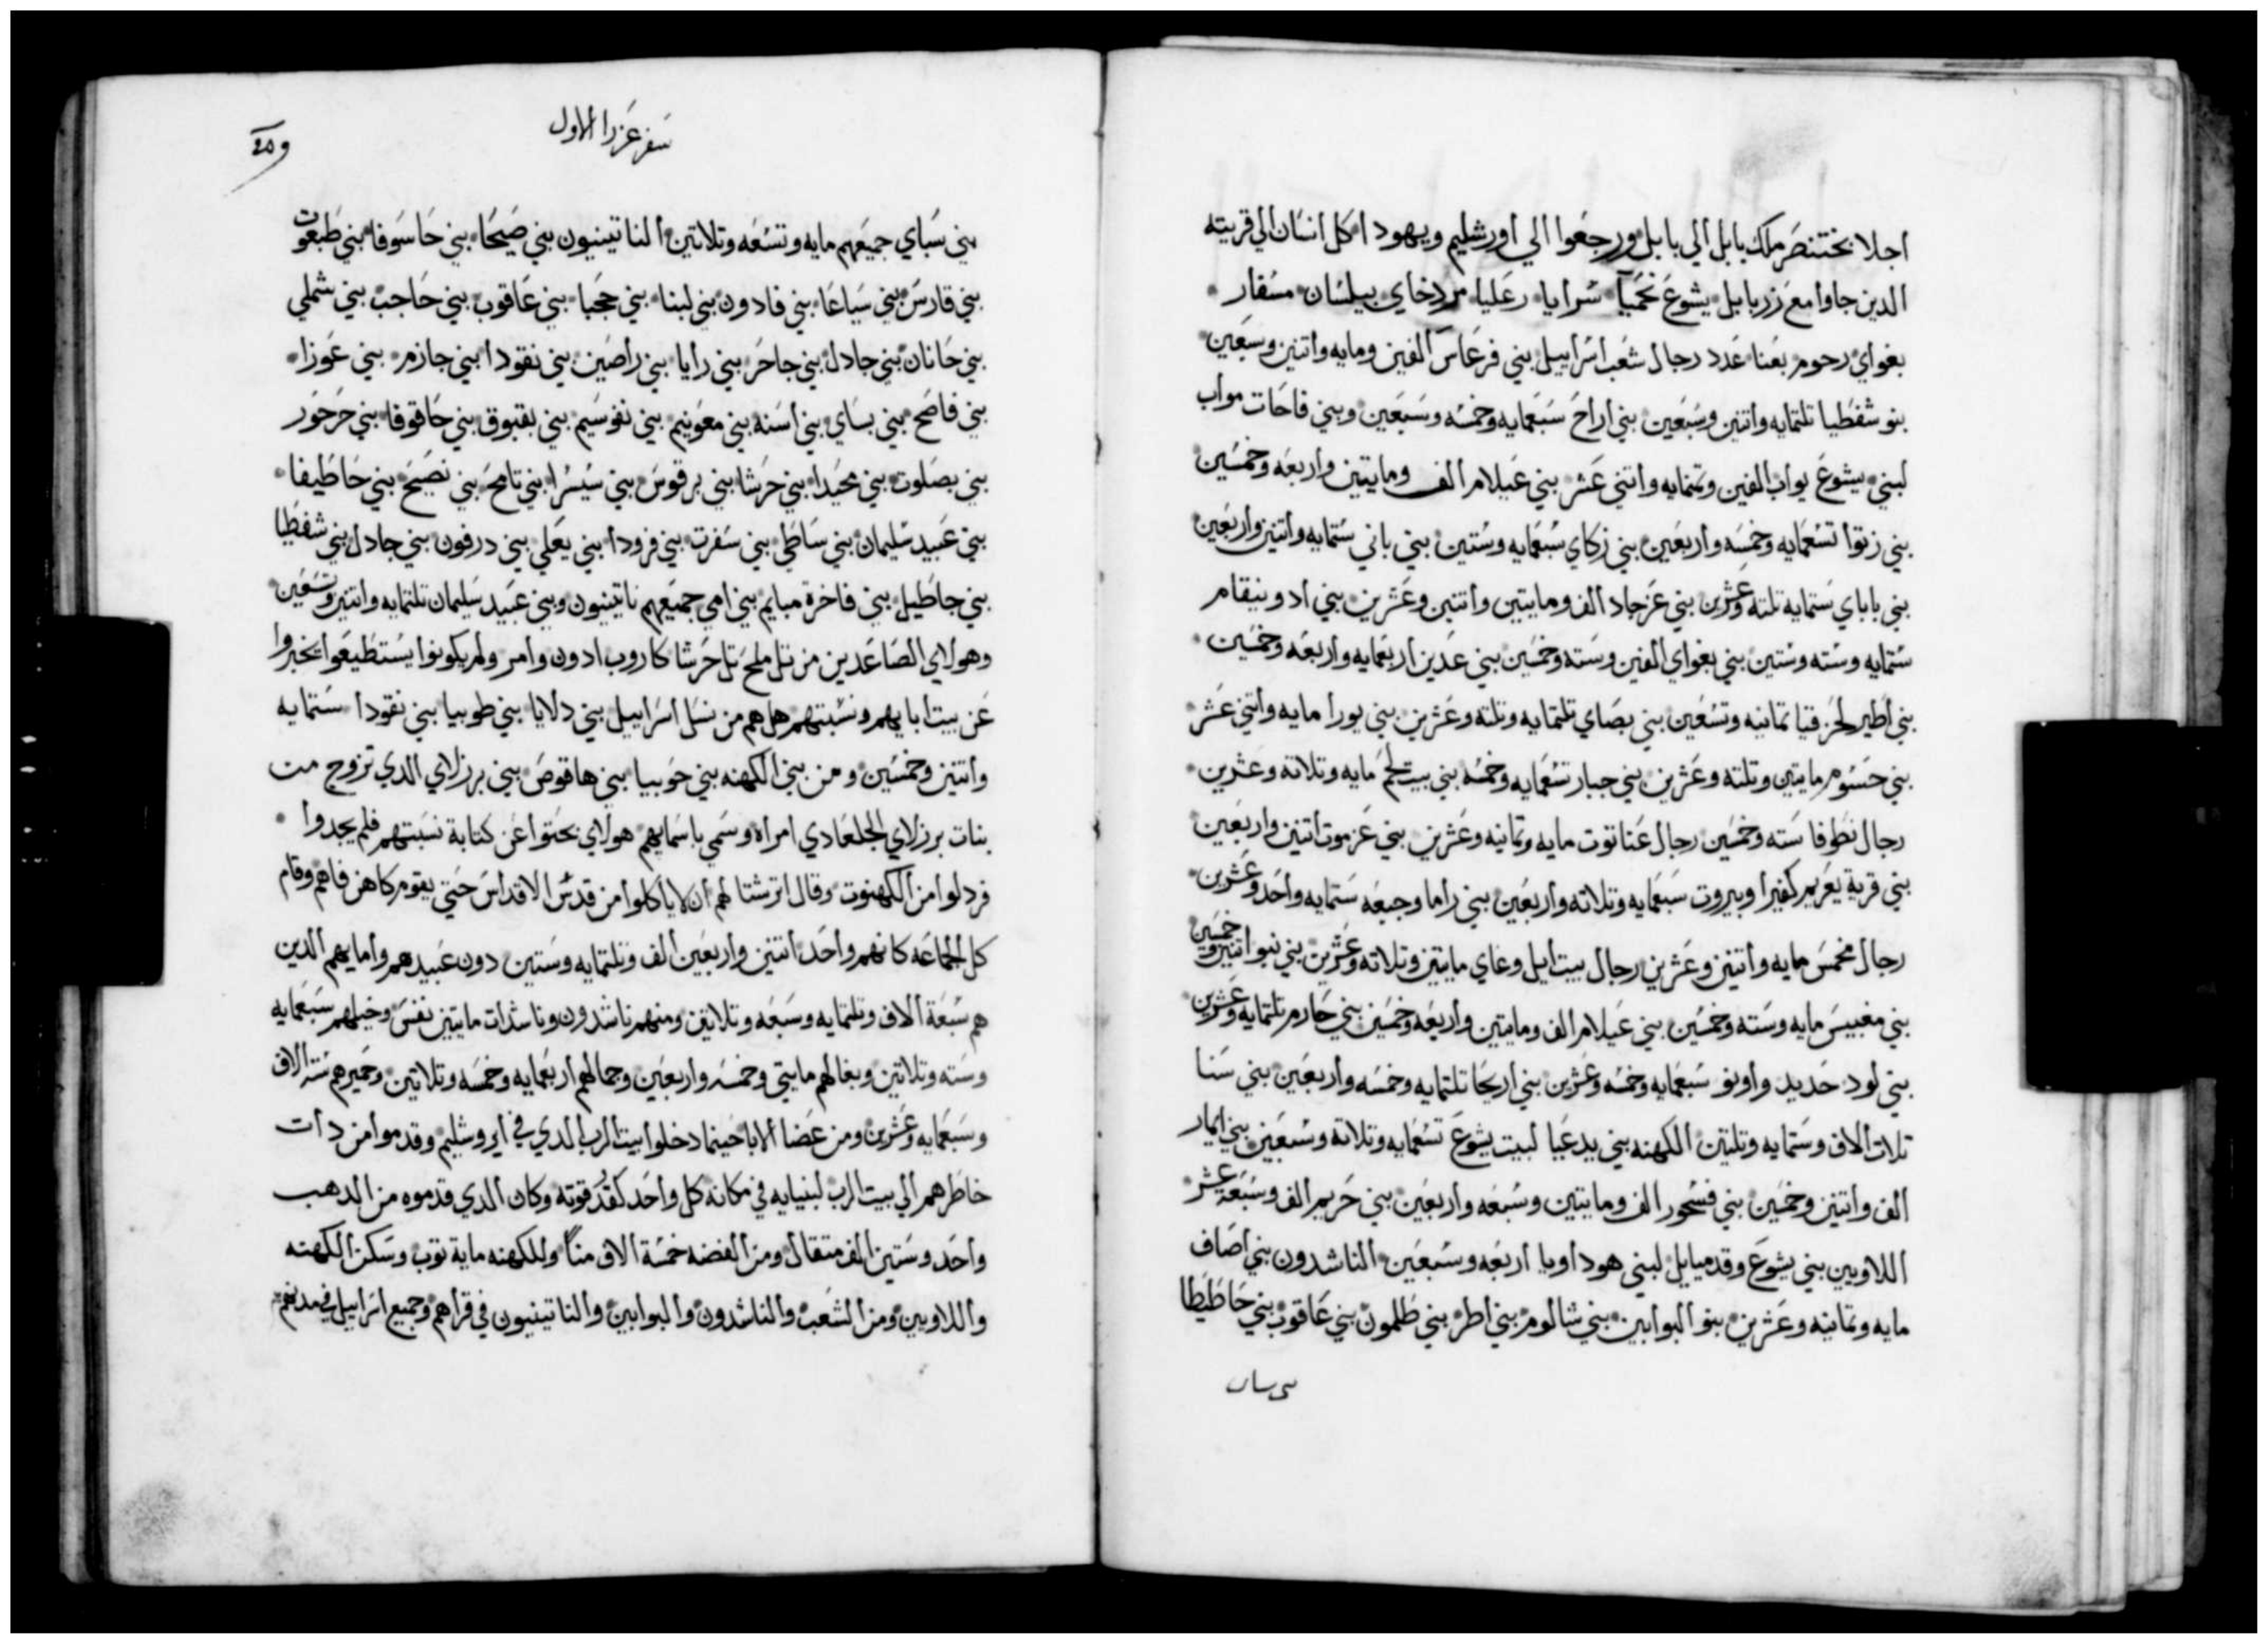 اجلا بختنصر ملك بابل الي بابل ورجعوا الي اورشليم ويهودا كل انسان الي قريته
الدين جاوا مع زربابل يشوع نحميا سرايا رعليا مردخاي بيلسان مسفار
بغواي رحوم بعنا عدد رجال شعب اسراييل بني فرعاس الفين ومايه واتنين وسبعين
بنو شفطيا تلتمايه واتنين وسبعين بني اراح سبعمايه وخمسه وسبعين وبني فاحات مواب
لبني يشوع يواب الفين وتمنمايه واتني عشر بني عيلام الف ومايتين واربعه وخمسين
بني زتوا تسعمايه وخمسه واربعين بني زكاي سبعمايه وستين بني باني ستمايه واتنين واربعين
بني باباي ستمايه تلته وعشرين بني عزجاد الف ومايتين واتنين وعشرين بني ادونيقام
ستمايه وسته وستين بني بغواي الفين وسته وخمسين بني عدين اربعمايه واربعه وخمسين
بني اطير لحزقيا تمانيه وتسعين بني بصاي تلتمايه وتلته وعشرين بني يورا مايه واتني عشر
بني حسوم مايتين وتلته وعشرين بني جبار تسعمايه وخمسه بني بيت لحم مايه وتلاته وعشرين
رجال نطوفا سته وخمسين رجال عناتوت مايه وتمانيه وعشرين بني عزموت اتنين واربعين
بني قرية يعريم كفيرا وبيروت سبعمايه وتلاته واربعين بني راما وجبعه ستمايه واحد وعشرين
رجال مخمس مايه واتنين وعشرين رجال بيت ايل وعاي مايتين وتلاته وعشرين بني نبوا اتنين وخمسين
بني مغبيس مايه وسته وخمسين بني عيلام الف ومايتين واربعه وخمسين بني حارم تلتمايه وعشرين
بني لود حديد واونو سبعمايه وخمسه وعشرين بني اريحا تلتمايه وخمسه واربعين بني سنا
تلات الاف وستمايه وتلتين الكهنه بني يدعيا لبيت يشوع تسعمايه وتلاته وسبعين بني ايمار
الف واتنين وخمسين بني فسحور الف ومايتين وسبعه واربعين بني حريم الف وسبعة عشر
اللاويين بني يشوع وقدميايل لبني هوداويا اربعه وسبعين الناشدون بني اصاف
مايه وتمانيه وعشرين بنو البوابين بني شالوم بني اطر بني طلمون بني عاقوب بني حاطيطا
سفر عزرا الاول
بني سباي جميعهم مايه وتسعه وتلاتين الناتينيون بني صيحا بني حاسوفا بني طبعوت
بني قارس بني سياعا بني فادون بني لبنا بني حجبا بني عاقوب بني حاجب بني شملي
بني حانان بني جادل بني جاحر بني رايا بني راصين بني نقودا بني جازم بني عوزا
بني فاصح بني بساي بني اسنه بني معونيم بني نفوسيم بني بقبوق بني حاقوفا بني حرحور
بني بصلوت بني محيدا بني حرشا بني برقوس بني سيسرا بني تامح بني نصيح بني حاطيفا
بني عبيد سليمان بني ساطي بني سفرت بني فرودا بني يعلي بني درفون بني جادل بني شفطيا
بني حاطيل بني فاخرة مبايم بني امي جميعهم ناتينيون وبني عبيد سليمان تلتمايه واتنين وتسعين
وهولاي الصاعدين من تل ملح تل حرشا كاروب ادون وامر ولم يكونوا يستطيعوا يخبروا
عن بيت ابايهم ونسبتهم هل هم من نسل اسراييل بني دلايا بني طوبيا بني نقودا ستمايه
واتنين وخمسين ومن بني الكهنه بني حوبيا بني هاقوص بني برزلاي الدي تزوج من
بنات برزلاي الجلعادي امراه وسمي باسمايهم هولاي بحتوا عن كتابة نسبتهم فلم يجدوا
فردلوا من الكهنوت وقال اترشتا لهم ان لا ياكلوا من قدس الاقداس حتي يقوم كاهن فاهم وقام
كل الجماعه كانهم واحد اتنين واربعين الف وتلتمايه وستين دون عبيدهم وامايهم الدين
هم سبعة الاف وتلتمايه وسبعه وتلاتين ومنهم ناشدون وناشدات مايتين نفس وخيلهم سبعمايه
وسته وتلاتين وبغالهم مايتي وخمسه واربعين وجمالهم اربعمايه وخمسه وتلاتين وحميرهم سته الاف
وسبعمايه وعشرين ومن عضا الابا حينما دخلوا بيت الرب الدي في ايروشليم وقدموا من دات
خاطرهم الي بيت الرب لبنيايه في مكانه كل واحد كقدر قوته وكان الدي قدموه من الدهب
واحد وستين الف متقال ومن الفضه خمسة الاف منا وللكهنه ماية توب وسكن الكهنه
واللاويين ومن الشعب والناشدون والبوابين والناتينيون في قراهم وجميع اسراييل في مدنهم